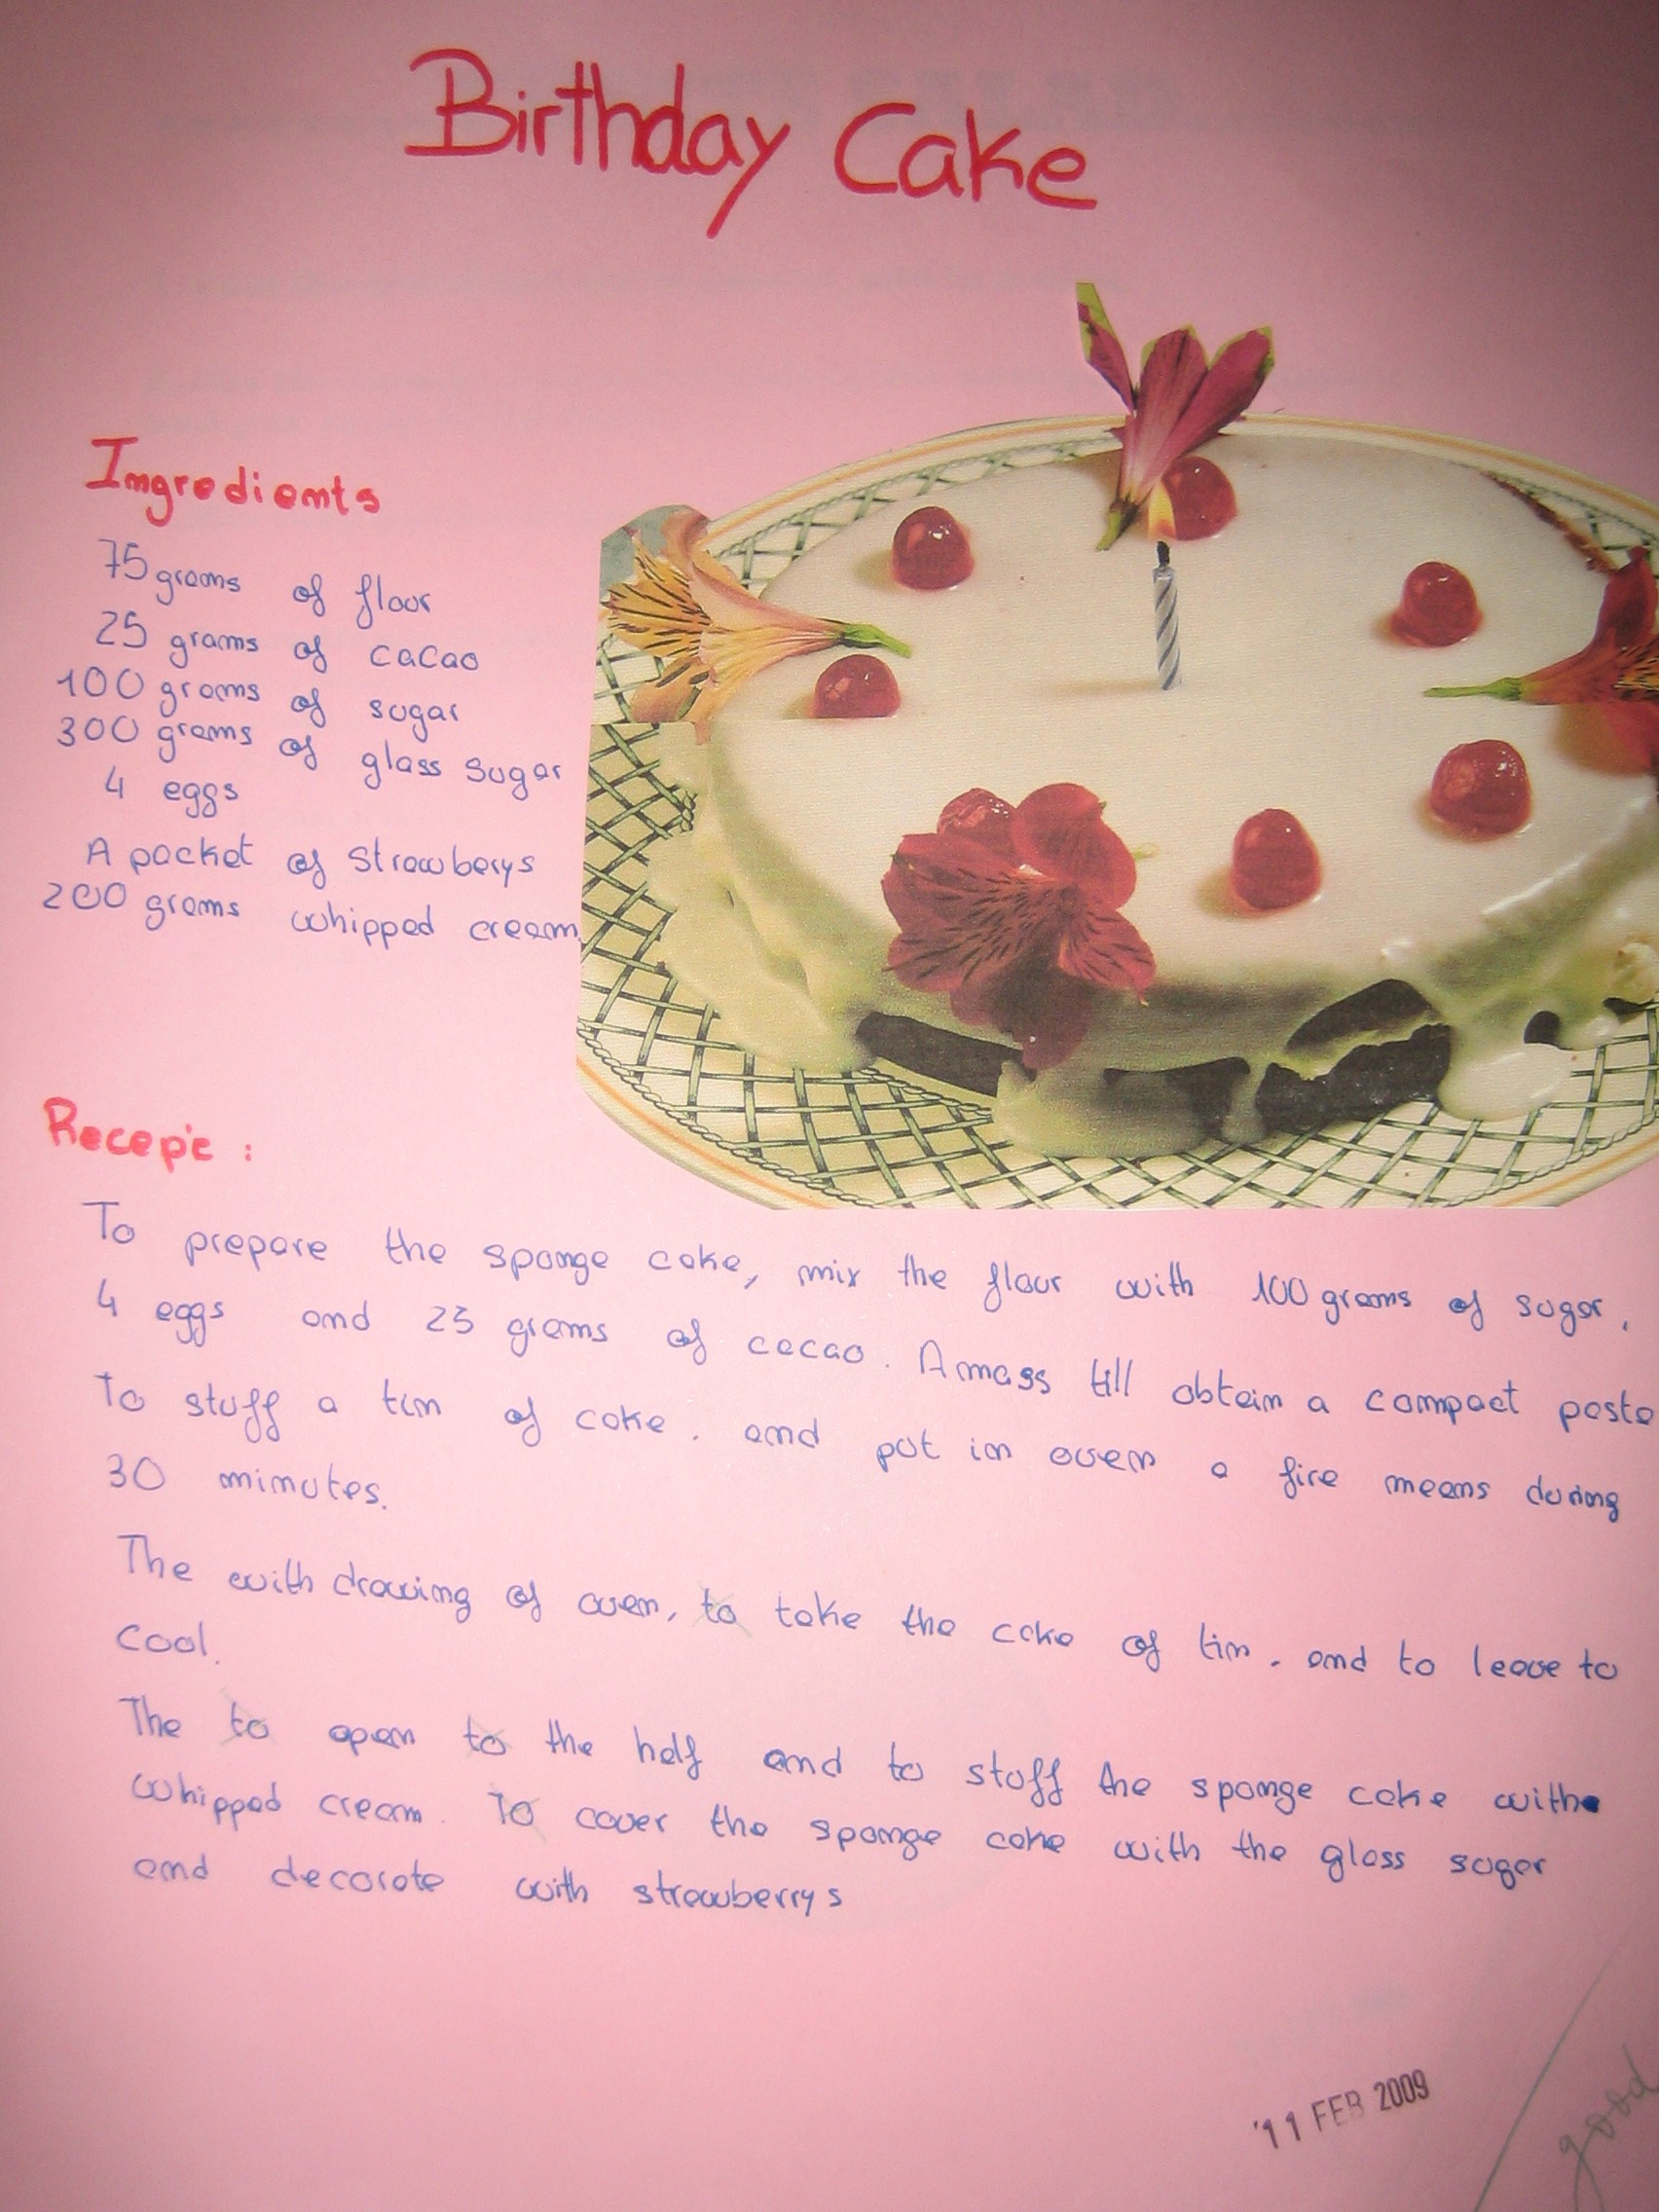 Birthday Cake
Ingredients
75 grams of flour
25 grams of cacao
100 grams of sugar
300 grams of glass sugar
4 eggs
A packet of strawberys
200 grams whipped cream
Recepie :
To prepare the sponge cake, mix the flour with 100 grams of sugar,
4 eggs and 25 grams of cacao. Amass till obtain a compact paste
To stuff a tin of cake. and put in oven a fire means during
30 minutes.
The withdrawing of oven, to take the cake of tin. and to leave to
cool.
The to open to the half and to stuff the sponge cake with
whipped cream. To cover the sponge cake with the glass sugar
and decorate with strawberrys
'11 FEB 2009
good